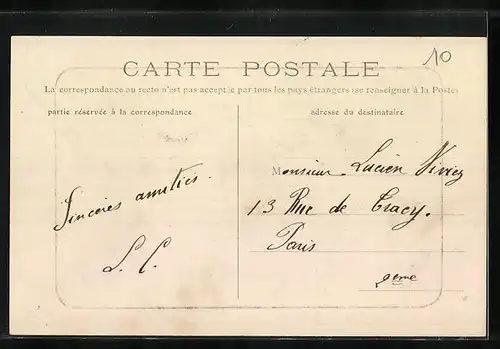 10
CARTE POSTALE
La correspondance au recto n'est pas acceptée par tous les pays étrangers (se renseigner à la Poste)
partie réservée à la correspondance
adresse du destinataire
Sincères amitiés.
L. C.
Monsieur Lucien
13 Rue de Tracy.
Paris
2eme